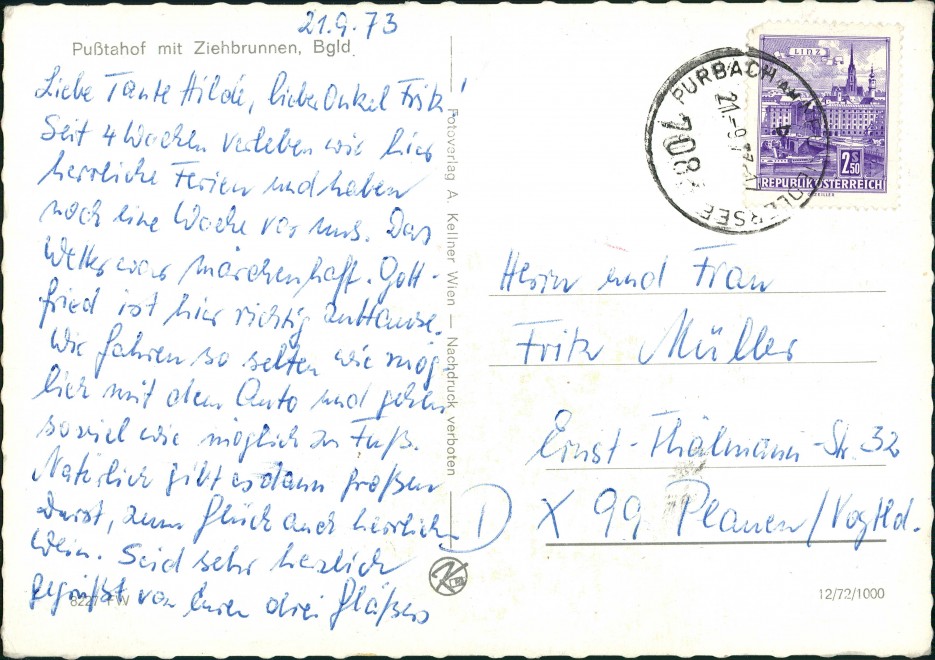 21.9.73
Pußtahof mit Ziehbrunnen, Bgld.
Liebe Tante Hilde, lieber Onkel Fritz!
Seit 4 Wochen verleben wir hier
herrliche Ferien und haben
noch eine Woche vor uns. Das
Wetter war märchenhaft. Gott-
fried ist hier richtig zu Hause.
Wir fahren so selten wie mög-
lich mit dem Auto und gehen
soviel wie möglich zu Fuß.
Natürlich gibt es dann großen
Durst, zum Glück auch herrlichen
Wein. Seid sehr herzlich
gegrüßt von Euren drei
8227 FW
Fotoverlag A. Kellner Wien — Nachdruck verboten
PURBACH AM NEUSIEDLERSEE
21.-9.73
708
LINZ
2S50
REPUBLIK ÖSTERREICH
Herrn und Frau
Fritz Müller
Ernst-Thälmann-Str. 32
D X 99 Plauen/Vogtld.
K
12/72/1000